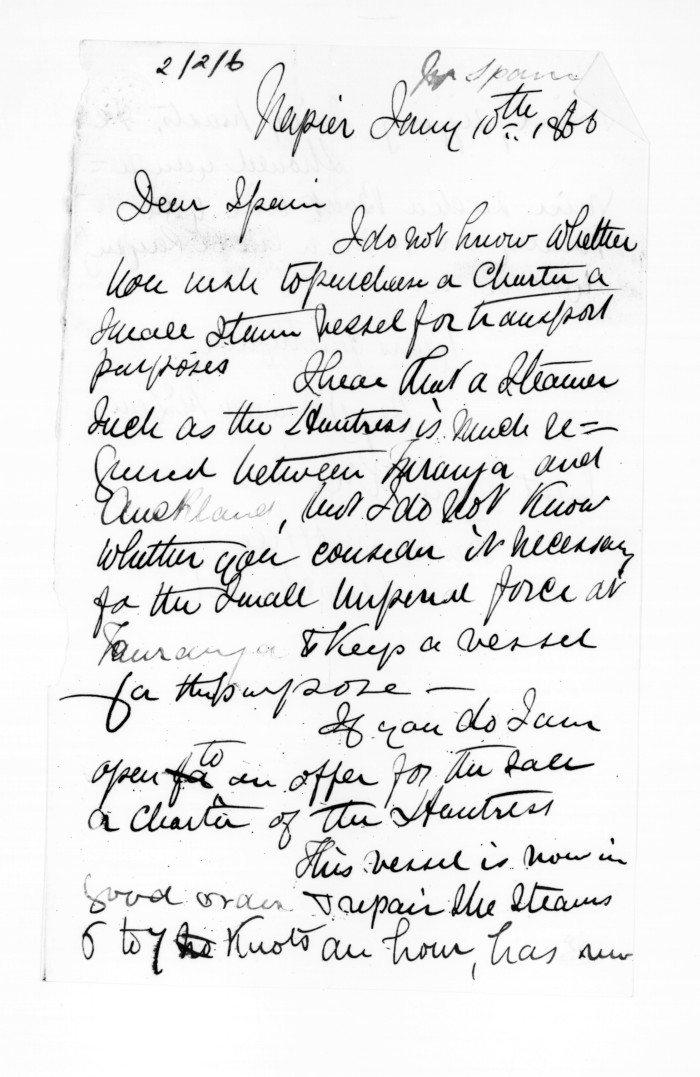 2/2/6
Mr Spain
Napier Jany 10th 1866
Dear Spain
I do not know whether
you wish to purchase or Charter a
small Steam Vessel for transport
purposes I hear that a Steamer
such as the Huntress is much re=
quired between Turanga and
Auckland, but I do not know
whether you consider it necessary
for the small Imperial force at
Tauranga to keep a vessel
for the purpose —
If you do I am
open to an offer for the sale
or charter of the Huntress
This vessel is now in
good order & repair She Steams
6 to 7 Knots an hour, has now